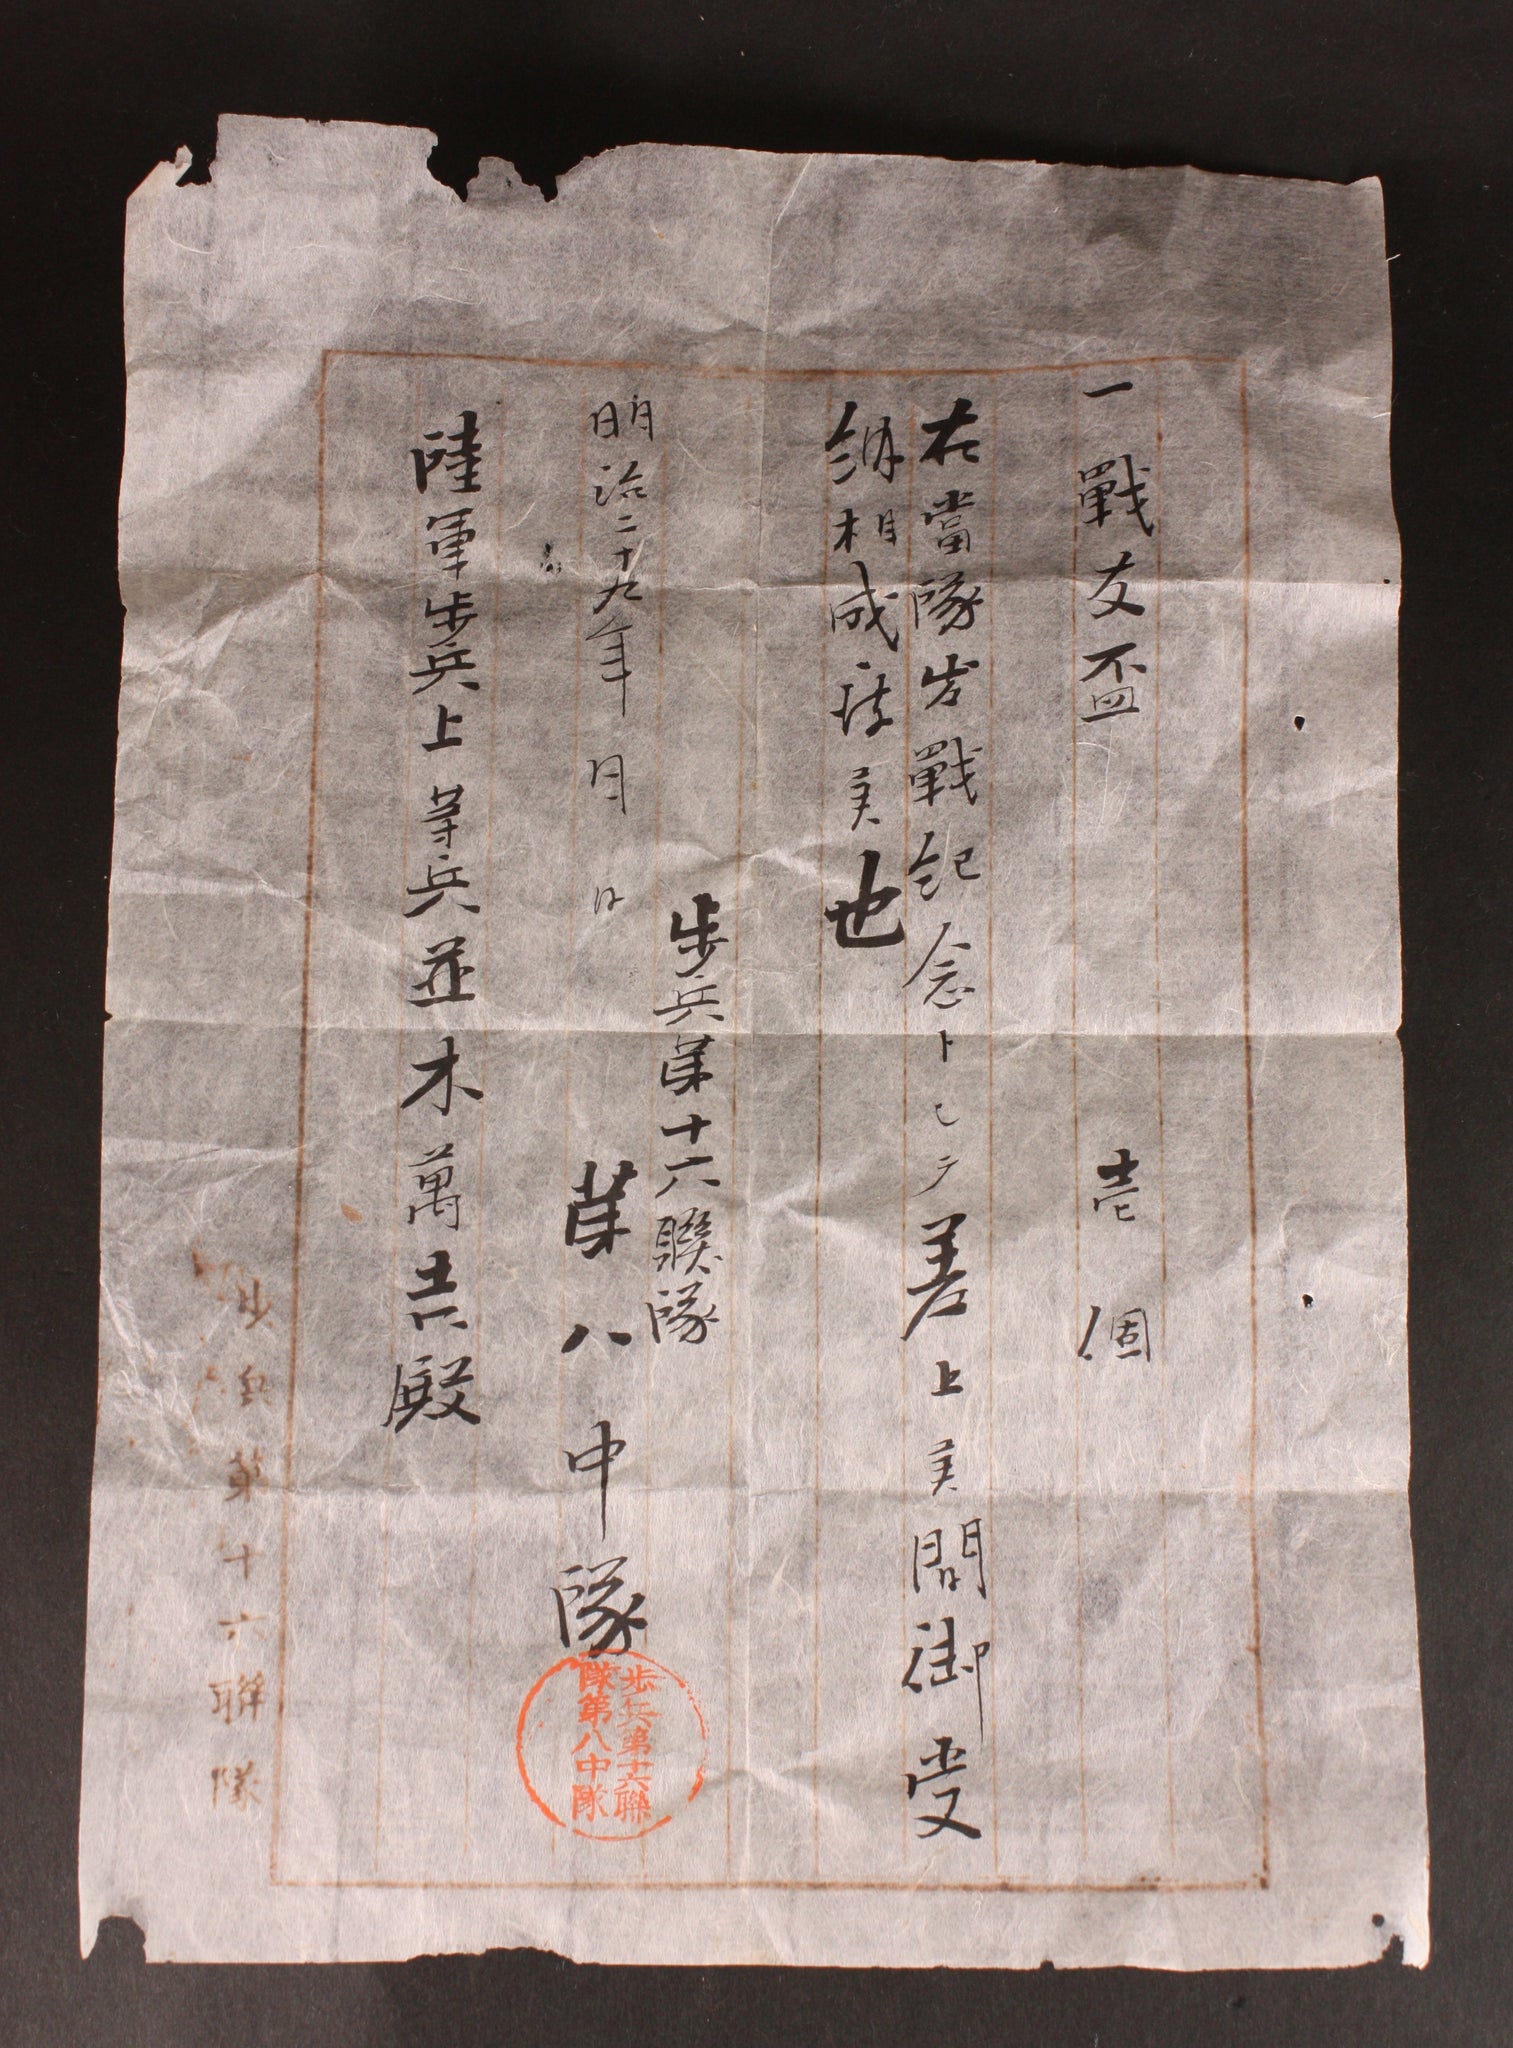 一戰友盃 壱個
右當隊出戰紀念トシテ差上候間御受
納相成度候也
歩兵第十六聯隊
明治二十九年 月 日
第八中隊
陸軍歩兵上等兵並木萬吉殿
歩兵第十六聯
隊第八中隊
歩兵第十六聯隊